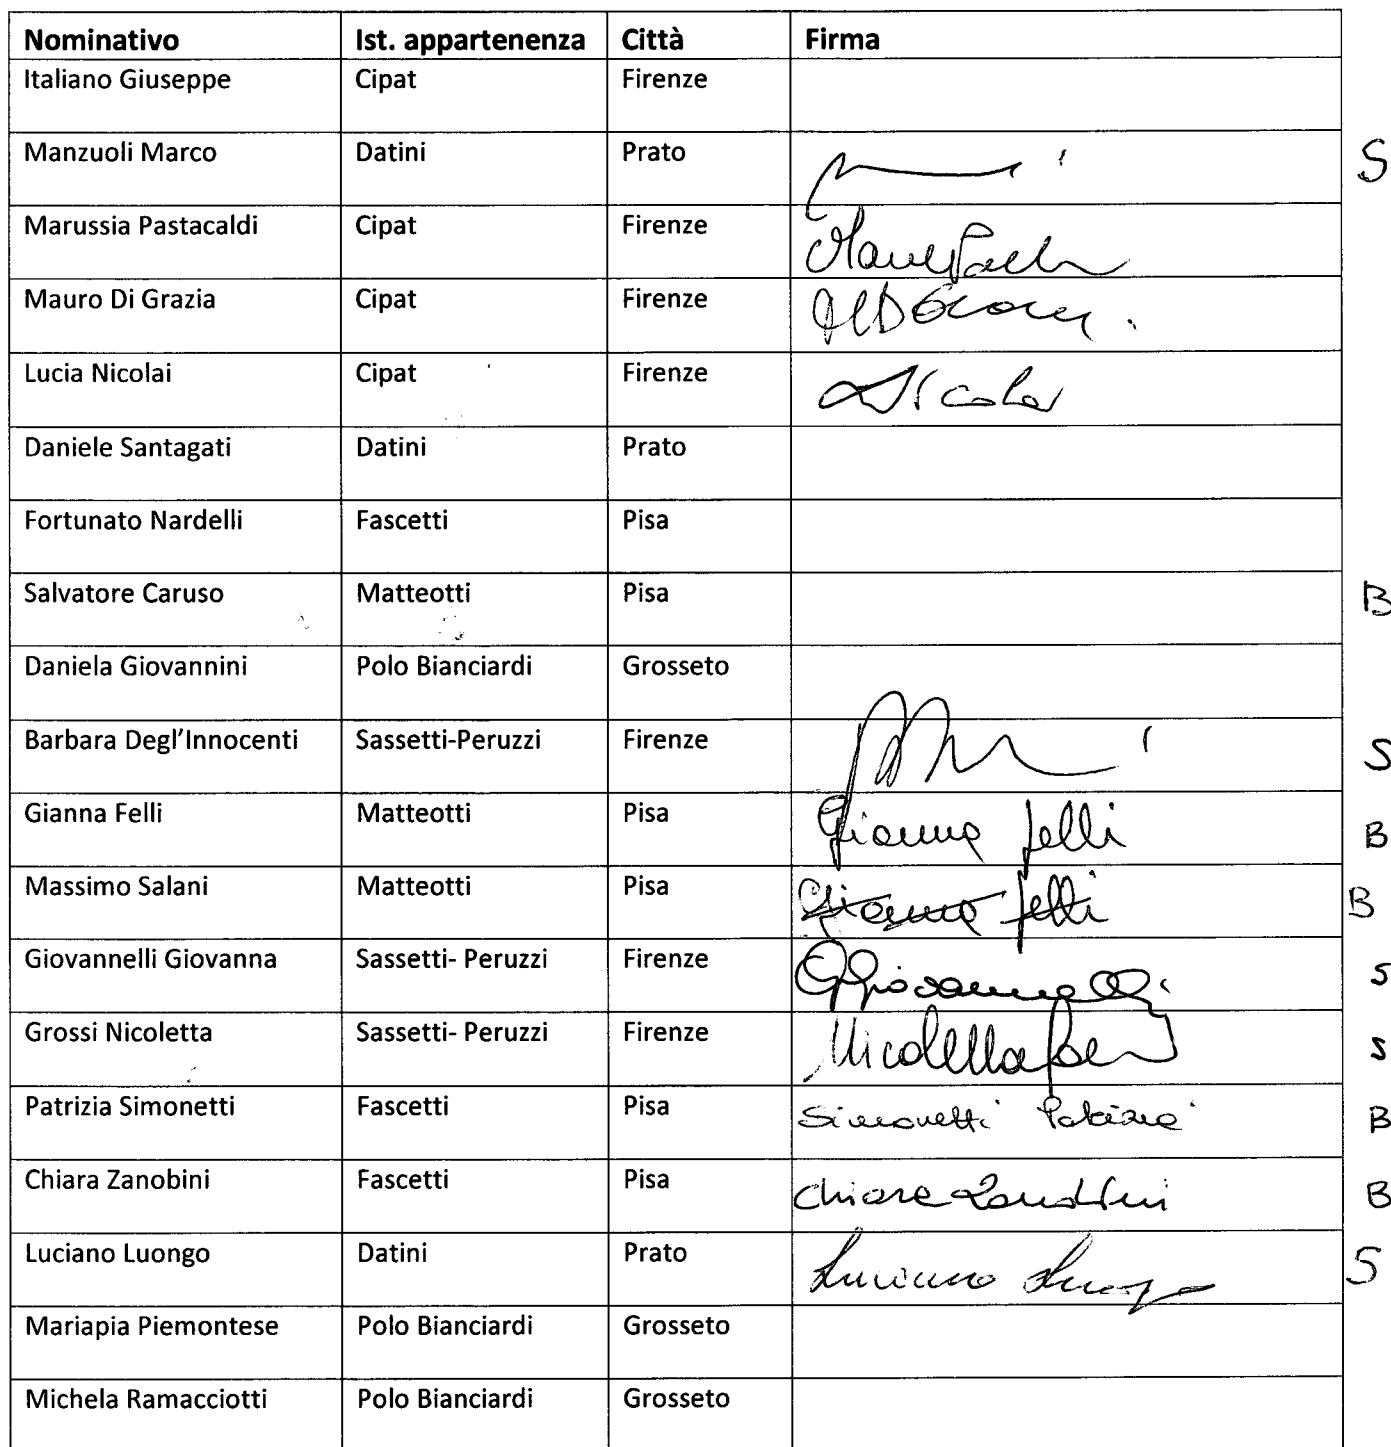 Nominativo Ist. appartenenza Città Firma
Italiano Giuseppe Cipat Firenze
Manzuoli Marco Datini Prato S
Marussia Pastacaldi Cipat Firenze
Mauro Di Grazia Cipat Firenze
Lucia Nicolai Cipat Firenze
Daniele Santagati Datini Prato
Fortunato Nardelli Fascetti Pisa
Salvatore Caruso Matteotti Pisa B
Daniela Giovannini Polo Bianciardi Grosseto
Barbara Degl'Innocenti Sassetti-Peruzzi Firenze S
Gianna Felli Matteotti Pisa Gianna Felli B
Massimo Salani Matteotti Pisa Gianna Felli B
Giovannelli Giovanna Sassetti- Peruzzi Firenze GGiovannelli S
Grossi Nicoletta Sassetti- Peruzzi Firenze Nicoletta S
Patrizia Simonetti Fascetti Pisa Simonetti Patrizia B
Chiara Zanobini Fascetti Pisa Chiara Zanobini B
Luciano Luongo Datini Prato Luciano Luongo S
Mariapia Piemontese Polo Bianciardi Grosseto
Michela Ramacciotti Polo Bianciardi Grosseto